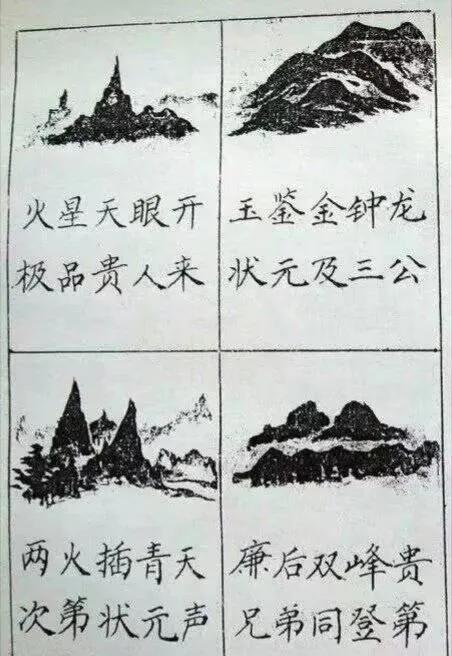 火星天眼开
极品贵人来
玉鉴金钟龙
状元及三公
两火插青天
次第状元声
廉后双峰贵
兄弟同登第